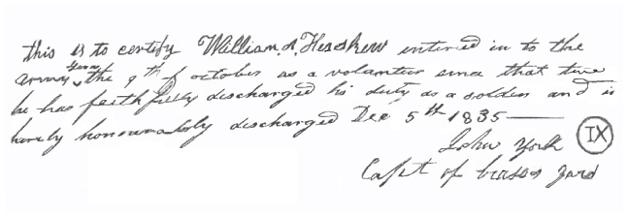 this is to certify William A. Heaskew entered in to the
army the 9th of october as a volanteer since that time
he has feethfully discharged his duty as a soldier and is
hereby honouraboly discharged Dec 5th 1835
John York IX
Capt of brasos gard